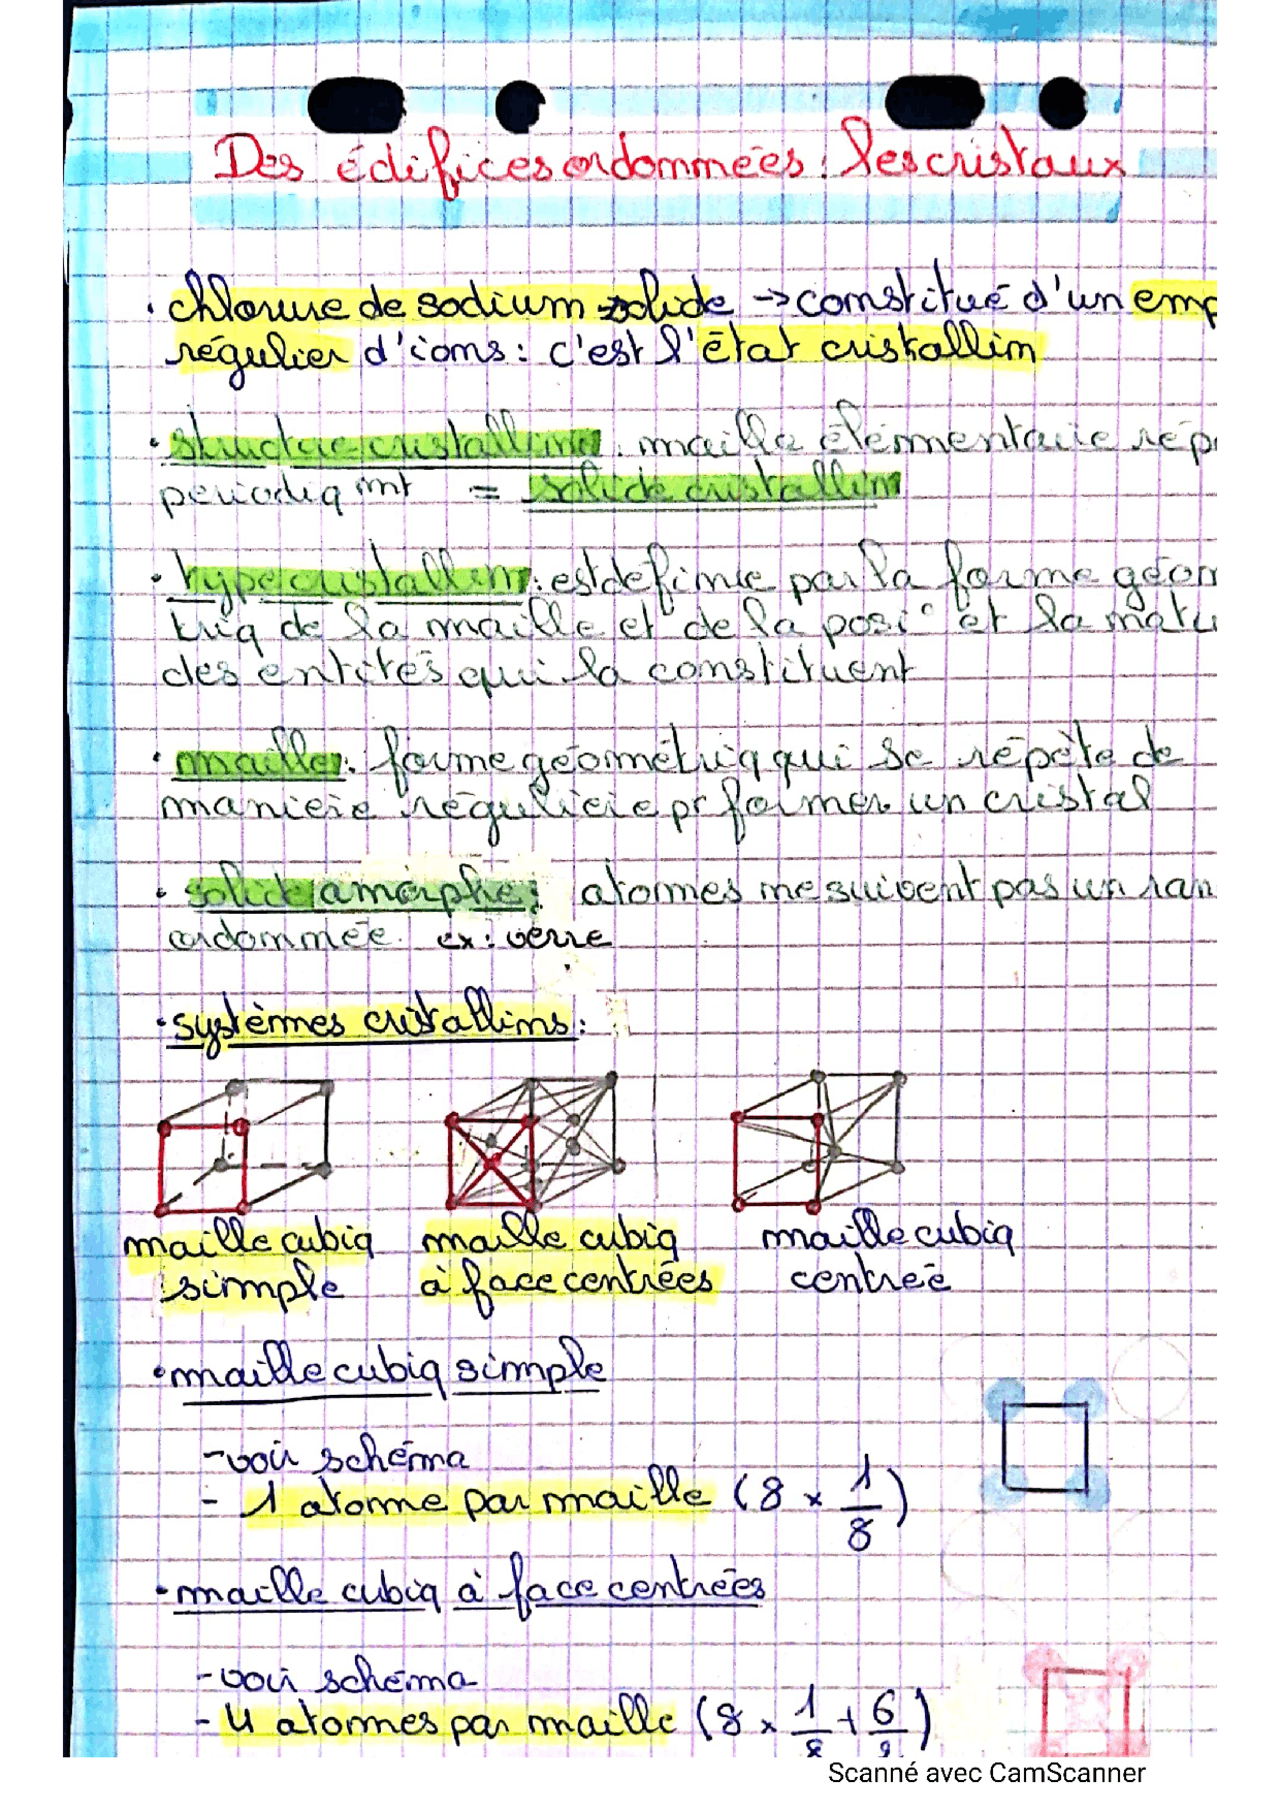 Des édifices ordonnées : les cristaux
· chlorure de sodium solide → constitué d'un emp
régulier d'ions : c'est l'état cristallin
· structure cristalline : maille élémentaire rép
périodiq mnt = solide cristallin
· type cristallin : est définie par la forme géom
triq de la maille et de la posi° et la natu
des entités qui la constituent
· maille : forme géométriq qui se répète de
manière régulière pr former un cristal
· solide amorphe : atomes ne suivent pas un ran
ordonnée. ex : verre
· systèmes cristallins :
maille cubiq maille cubiq maille cubiq
simple à face centrées centrée
· maille cubiq simple
- voir schéma
- 1 atome par maille (8 × 1/8)
· maille cubiq à face centrées
- voir schéma
- 4 atomes par maille (8 × 1/8 + 6/2)
Scanné avec CamScanner